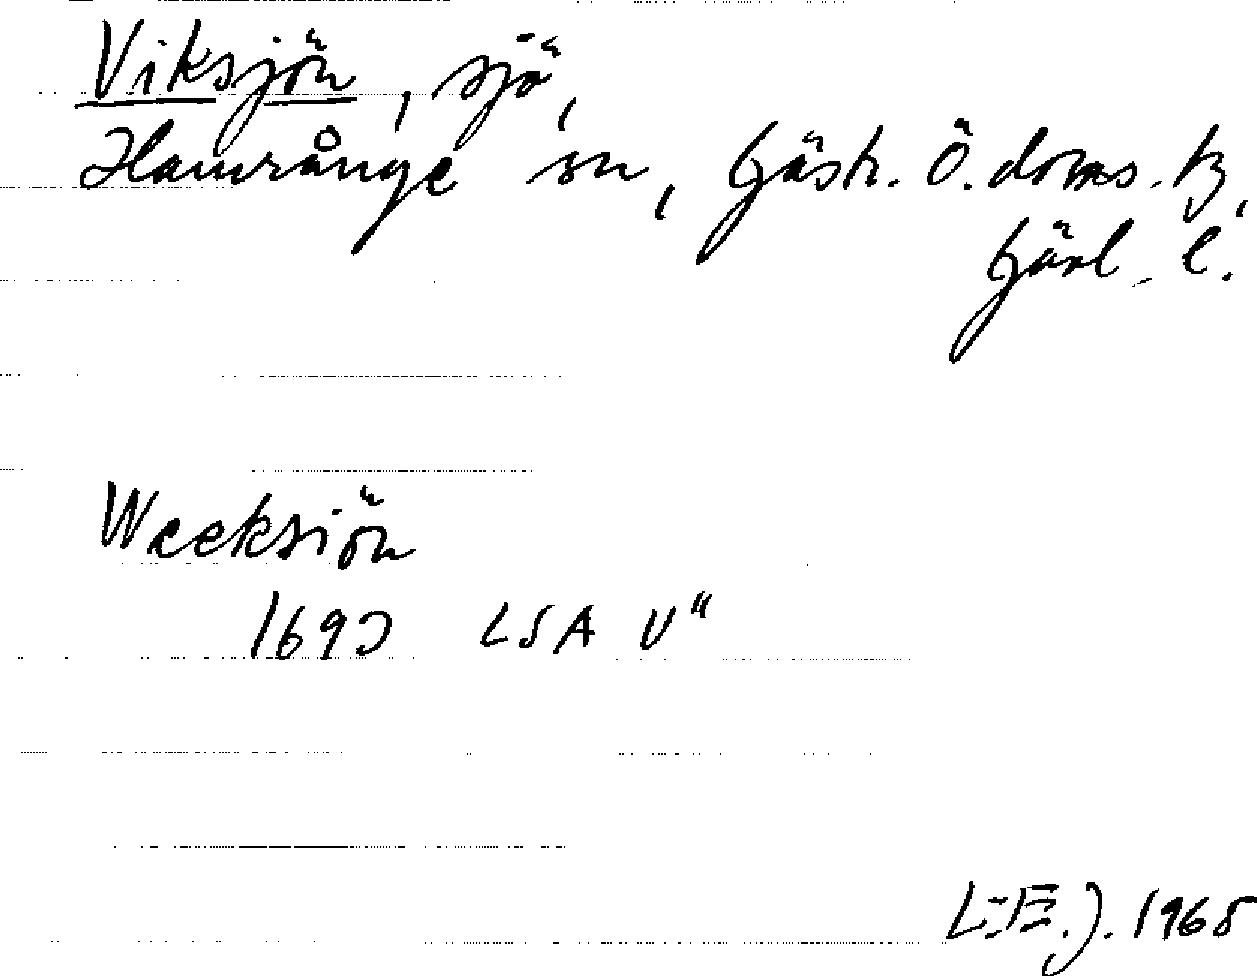 Viksjön, sjö,
Hamrånge sn, Gästr. Ö. doms. tg,
Gävl. l.
Weeksiön
1693 LSA V"
L-E.J. 1965